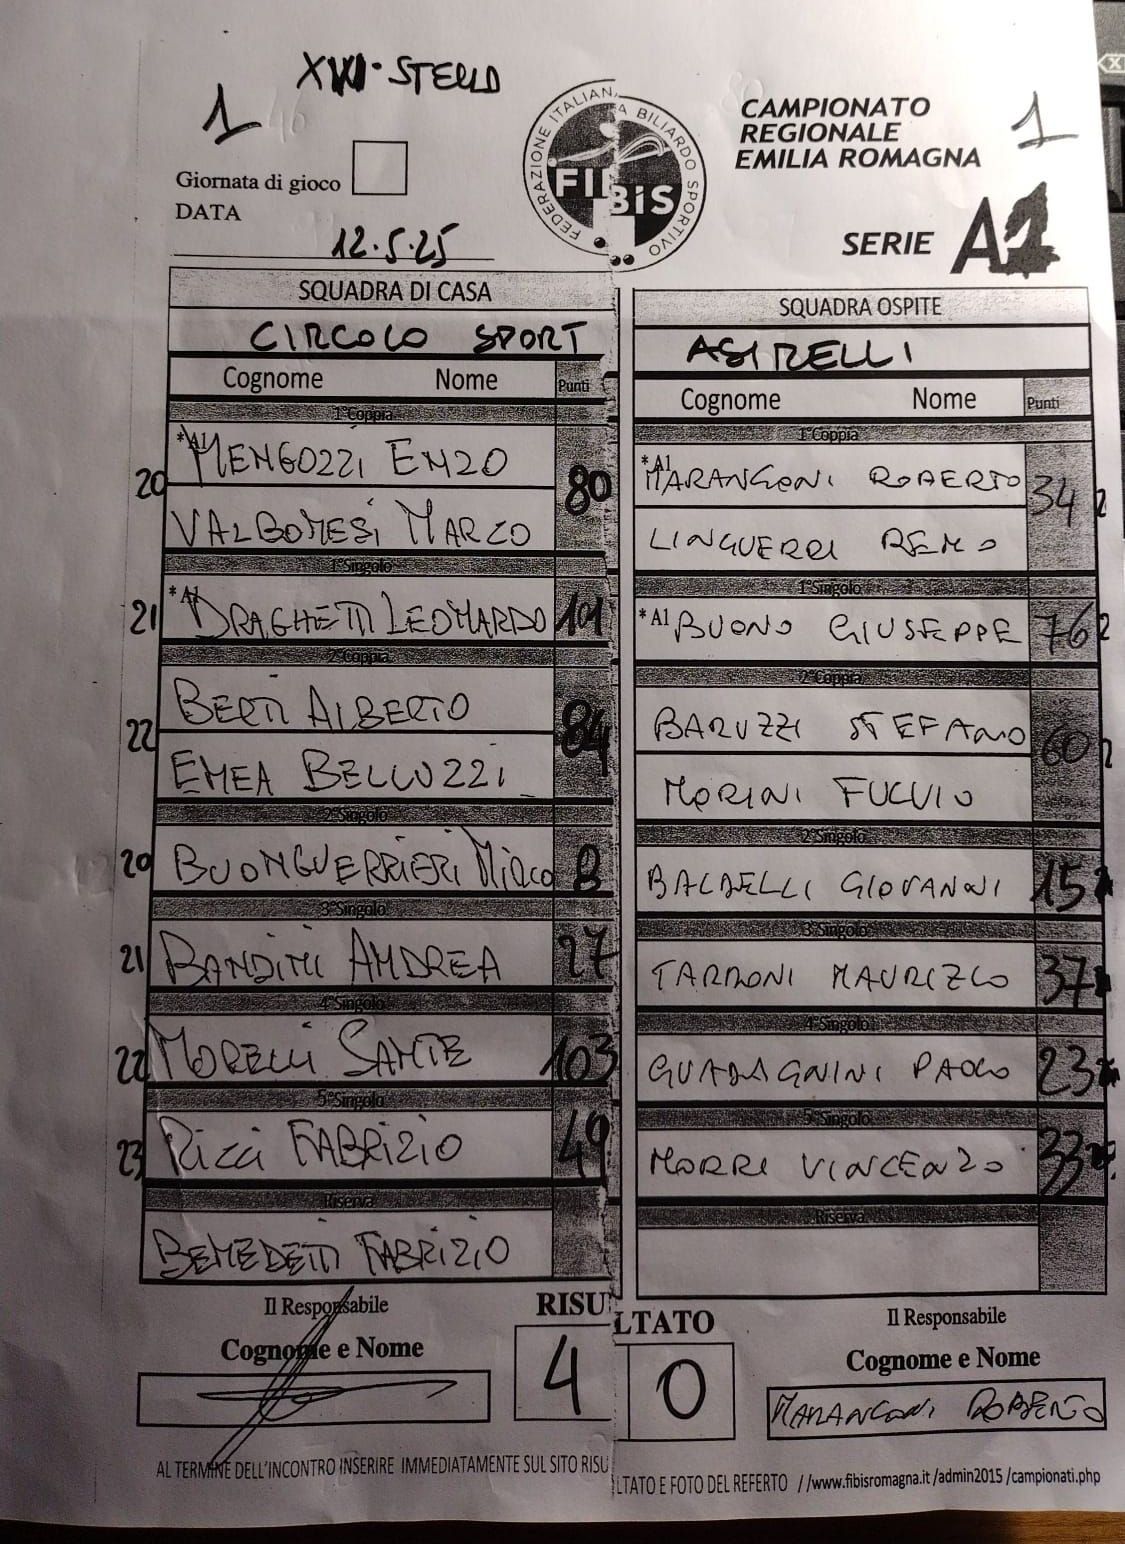 1
FEDERAZIONE ITALIANA BILIARDO SPORTIVO
FIBiS
CAMPIONATO
REGIONALE
EMILIA ROMAGNA
1
Giornata di gioco
DATA
12.5.25
SERIE A
SQUADRA DI CASA
CIRCOLO SPORT
Cognome Nome Punti
1°Coppia
*A1
20 MENGOZZI ENZO 80
VALBONESI MARCO
1°Singolo
21 DRAGHETTI LEONARDO 101
2°Coppia
22 BERTI ALBERTO 84
EMEA BELLUZZI
2°Singolo
20 BUONGUERRIERI MIRCO 8
3°Singolo
21 BANDINI ANDREA 27
4°Singolo
22 MORELLI SANTE 103
5°Singolo
23 RICCI FABRIZIO 49
Riserva
BENEDETTI FABRIZIO
SQUADRA OSPITE
ASIRELLI
Cognome Nome Punti
1°Coppia
*A1
MARANGONI ROBERTO 34 2
LINGUERRI REMO
1°Singolo
*A1 BUONO GIUSEPPE 76 2
2°Coppia
BARUZZI STEFANO 60 2
MORINI FULVIO
2°Singolo
BALDELLI GIOVANNI 15
3°Singolo
TARRONI MAURIZIO 37
4°Singolo
GUADAGNINI PAOLO 23
5°Singolo
MORRI VINCENZO 33
Riserva
Il Responsabile
Cognome e Nome
RISULTATO
4 0
Il Responsabile
Cognome e Nome
MARANGONI ROBERTO
AL TERMINE DELL'INCONTRO INSERIRE IMMEDIATAMENTE SUL SITO RISULTATO E FOTO DEL REFERTO //www.fibisromagna.it/admin2015/campionati.php